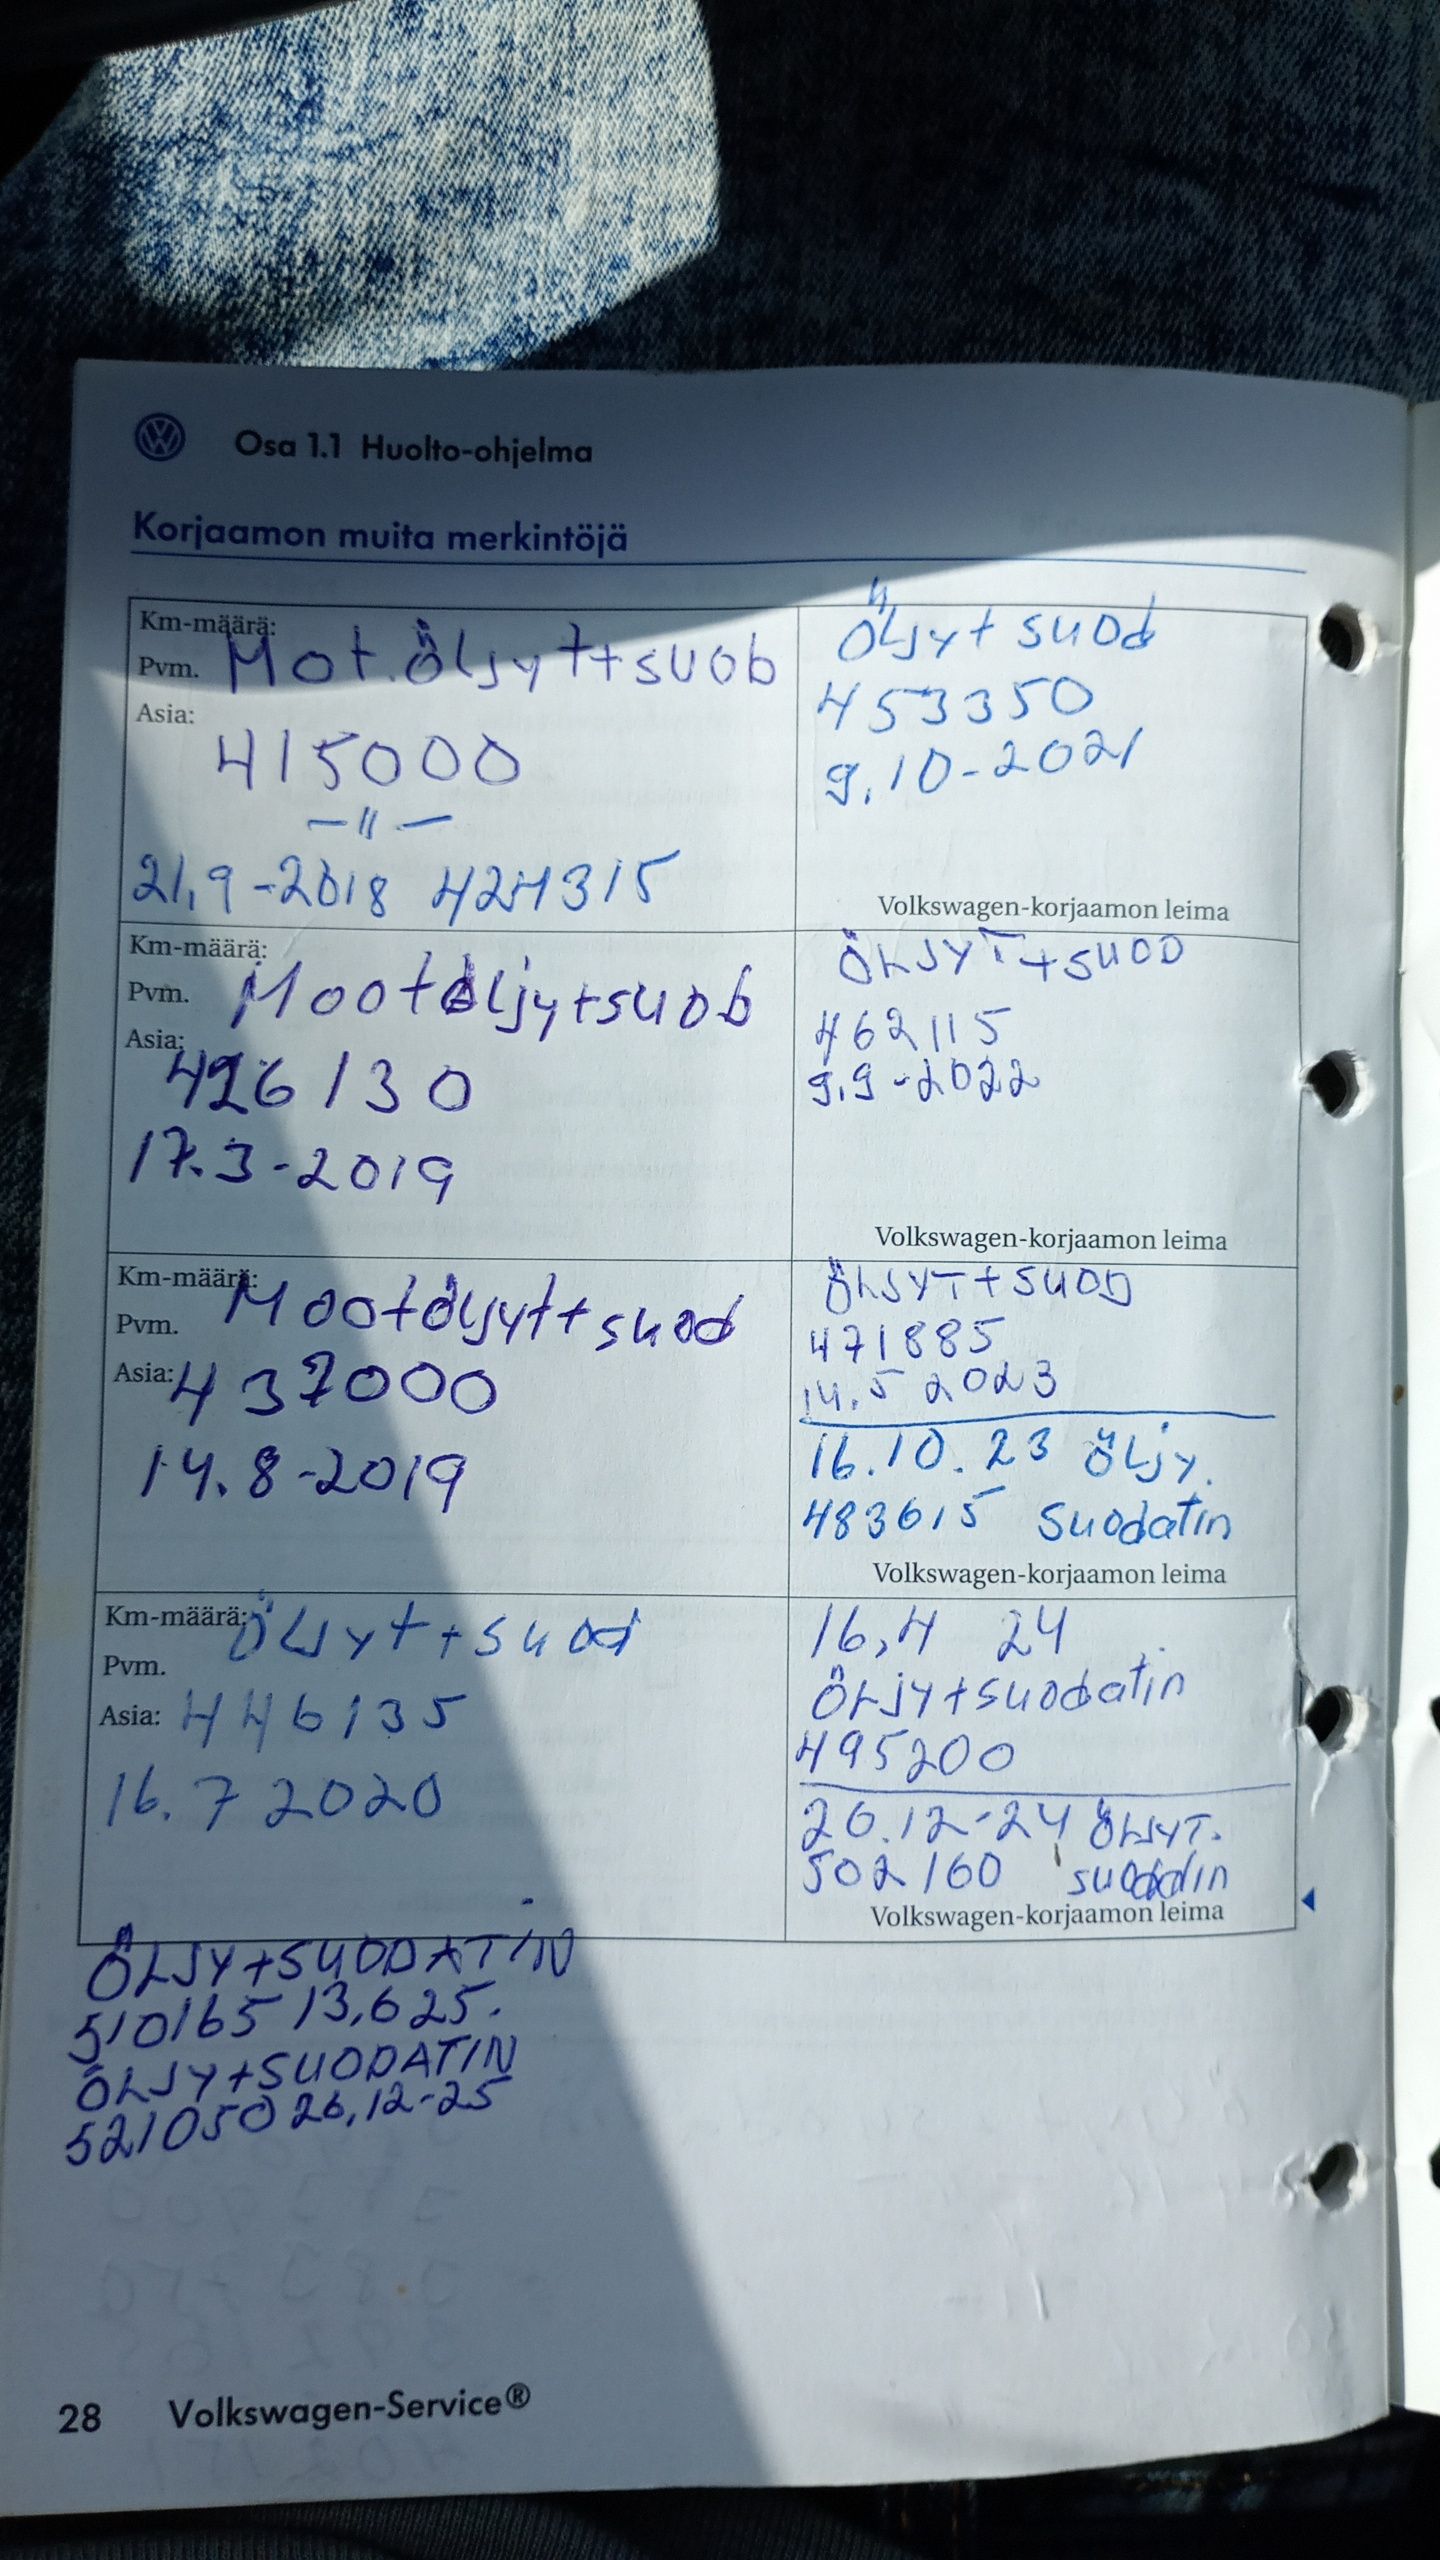 Osa 1.1 Huolto-ohjelma
Korjaamon muita merkintöjä
Km-määrä:
Pvm. Mot.Öljyt+suob
Asia:
415000
-"-
21.9-2018 424315
Öljyt suod
453350
9.10-2021
Volkswagen-korjaamon leima
Km-määrä:
Pvm. Mootöljy+suob
Asia:
426130
17.3-2019
ÖLJYT+SUOD
462115
9.9-2022
Volkswagen-korjaamon leima
Km-määrä:
Pvm. Mootöljyt+suod
Asia: 437000
14.8-2019
ÖLJYT+SUOD
471885
14.5 2023
16.10.23 Öljy.
483615 suodatin
Volkswagen-korjaamon leima
Km-määrä: Öljyt+suod
Pvm.
Asia: 446135
16.7 2020
16,4 24
Öljy+suodatin
495200
20.12-24 ÖLJYT.
502160 suodatin
Volkswagen-korjaamon leima
ÖLJY+SUODATIN
510165 13,6 25.
ÖLJY+SUODATIN
521050 26,12-25
28 Volkswagen-Service®